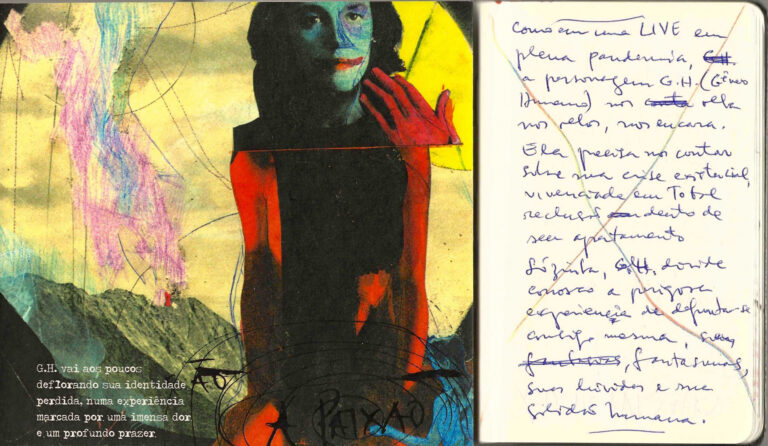 G.H. vai aos poucos
deflorando sua identidade
perdida, numa experiência
marcada por uma imensa dor
e um profundo prazer
ÃO
A PAIXÃO
Como em uma LIVE em
plena pandemia, G.H.
a personagem G.H. (Gênero
Humano) nos olha
nos olhos, nos encara.
Ela precisa nos contar
sobre sua crise existencial,
vivenciada em Total
reclusão dentro de
seu apartamento
Sózinha, G.H. divide
conosco a perigosa
experiência de defrontar-se
consigo mesma, seus
fantasmas,
suas dúvidas e sua
solidão humana.